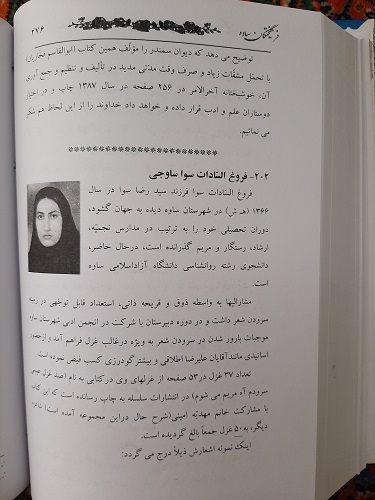 فرهیختگان ساوه ۲۷۶
توضیح می دهد که دیوان سمندر را مؤلف همین کتاب (ابوالقاسم فخاریان)
با تحمّل مشقّات زیاد و صرف وقت مدتی مدید در تألیف و تنظیم و جمع آوری
آن، خوشبختانه آخرالامر در ۲۵۶ صفحه در سال ۱۳۸۷ چاپ و در اختیار
دوستاران علم و ادب قرار داده و خواهد داد خداوند را از این لحاظ هم شکر
می نمائیم.
************************
۲۰۲- فروغ السّادات سوا ساوجی
فروغ السّادات سوا فرزند سید رضا سوا در سال
۱۳۶۶ (هـ ش) در شهرستان ساوه دیده به جهان گشود،
دوران تحصیلی خود را به ترتیب در مدارس نجمیّه،
ارشاد، رستگار و مریم گذرانده است، درحال حاضر،
دانشجوی رشته روانشناسی دانشگاه آزاداسلامی ساوه
است.
مشارالیها به واسطه ذوق و قریحه ذاتی، استعداد قابل توجّهی در زمینه
سرودن شعر داشت و در دوره دبیرستان با شرکت در انجمن ادبی شهرستان ساوه
موجبات بارور شدن در سرودن شعر به ویژه درغالب غزل فراهم آمد و ازحضور
اساتیدی مانندآقایان علیرضا اطلاقی و بیشترگودرزی کسب فیض نموده است.
تعداد ۳۷ غزل در۵۳ صفحه از غزلهای وی درکتابی به نام (صد غزل عیسی
سرودم آه مریم می شوم) در انتشارات سلسله به چاپ رسانده است که این کتاب
با مشارکت خانم مهدیّه امینی(شرح حال دراین مجموعه آمده است) شاعره
دیگر، به۵۰ غزل جمعاً بالغ گردیده است.
اینک نمونه اشعارش ذیلاً درج می گردد: